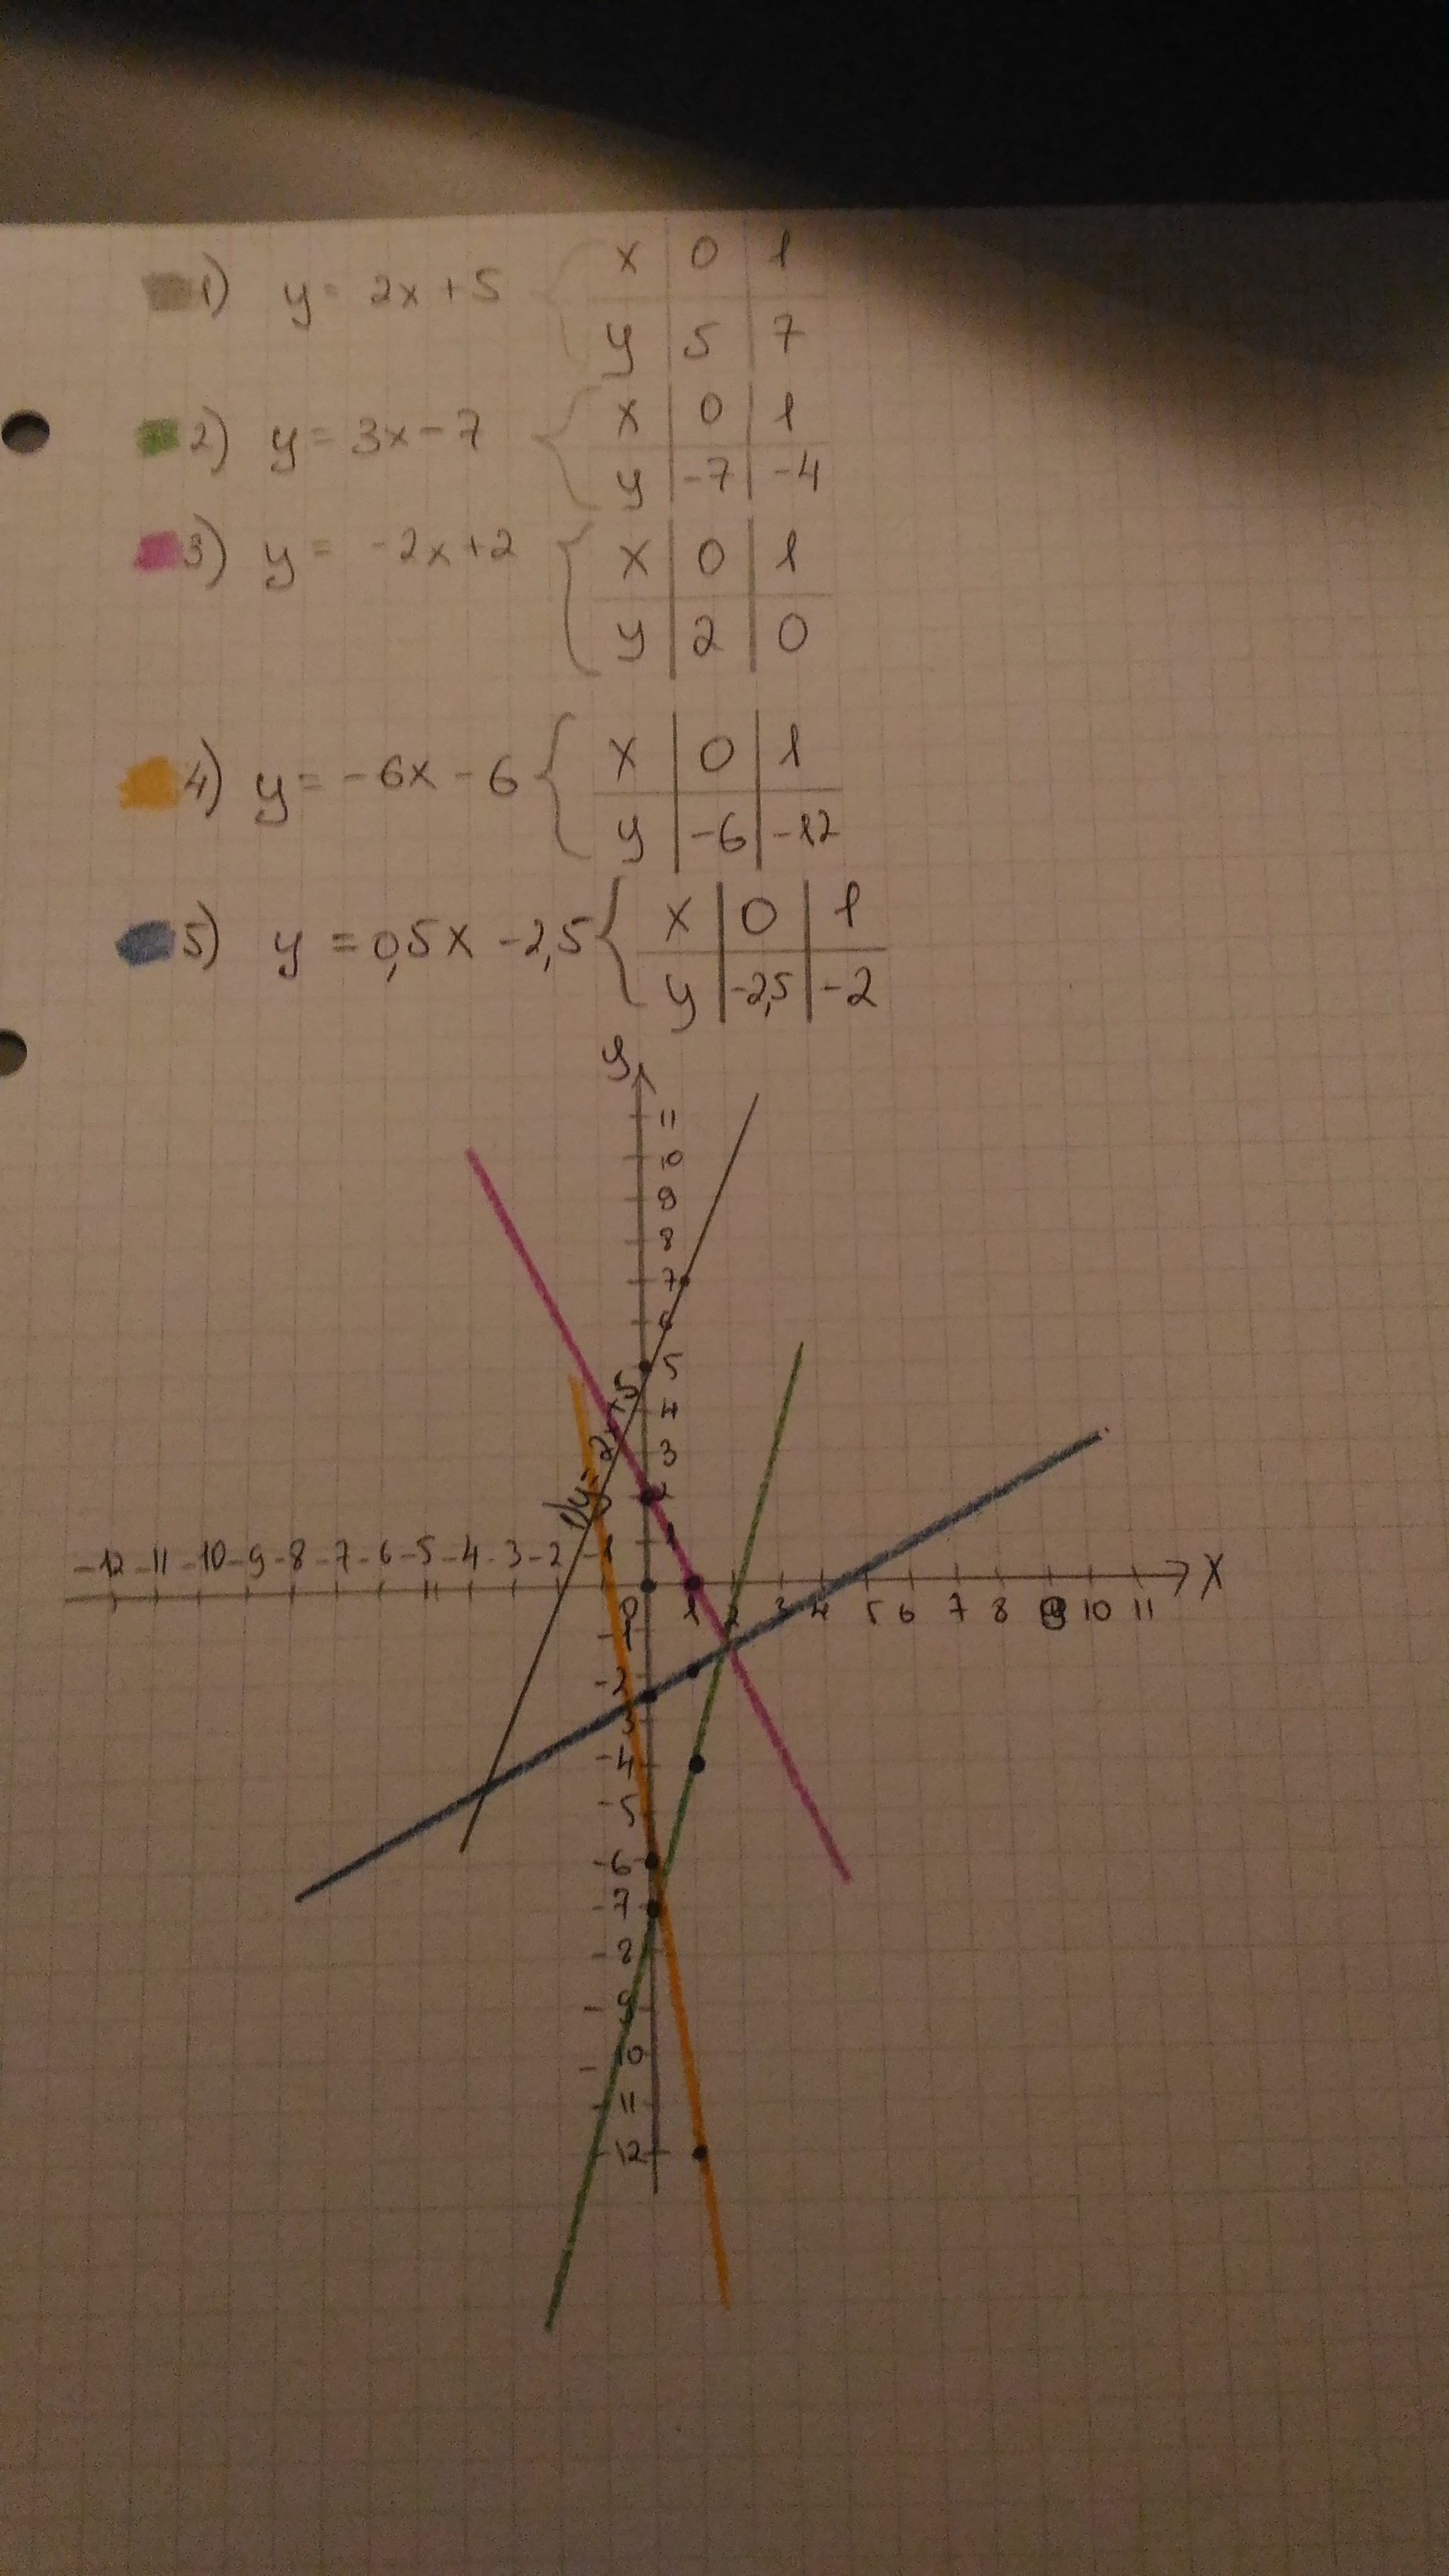 x | 0 | 1
1) y = 2x + 5
y | 5 | 7
x | 0 | 1
2) y = 3x - 7
y | -7 | -4
3) y = -2x + 2
x | 0 | 1
y | 2 | 0
x | 0 | 1
4) y = -6x - 6
y | -6 | -12
x | 0 | 1
5) y = 0,5x - 2,5
y | -2,5 | -2
y
11
10
9
8
7
6
5
4
3
2
1
1) y = 2x + 5
-12 -11 -10 -9 -8 -7 -6 -5 -4 -3 -2 -1
x
0 1 2 3 4 5 6 7 8 9 10 11
-1
-2
-3
-4
-5
-6
-7
-8
-9
-10
-11
-12